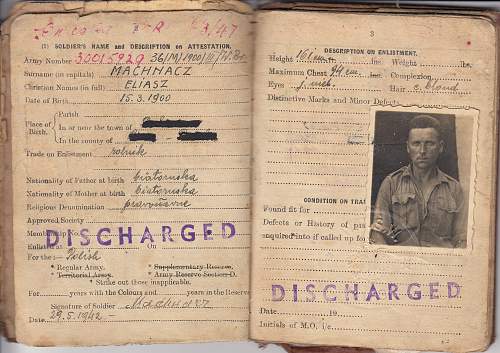 3/47
(1) SOLDIER'S NAME and DESCRIPTION on ATTESTATION.
Army Number 30015929 36/M/1900/III/
Surname (in capitals) MACHNACZ
Christian Names (in full) ELIASZ
Date of Birth 15.3.1900
Place of Birth.
Parish
In or near the town of
In the county of
Trade on Enlistment rolnik
Nationality of Father at birth białoruska
Nationality of Mother at birth białoruska
Religious Denomination prawosławne
Approved Society
Membership No.
DISCHARGED
Enlisted On
For the :— Polish
* Regular Army. * Supplementary Reserve.
* Territorial Army. * Army Reserve Section D.
* Strike out those inapplicable.
For years with the Colours and years in the Reserve
Signature of Soldier
Date 29.5.1942
3
DESCRIPTION ON ENLISTMENT.
Height 161 cm. ft. ins. Weight lbs.
Maximum Chest 94 cm. ins. Complexion
Eyes nieb. Hair c. blond
Distinctive Marks and Minor Defects
CONDITION ON TRA
Found fit for
Defects or History of pas
enquired into if called up fo
DISCHARGED
Date 19
Initials of M.O. i/c